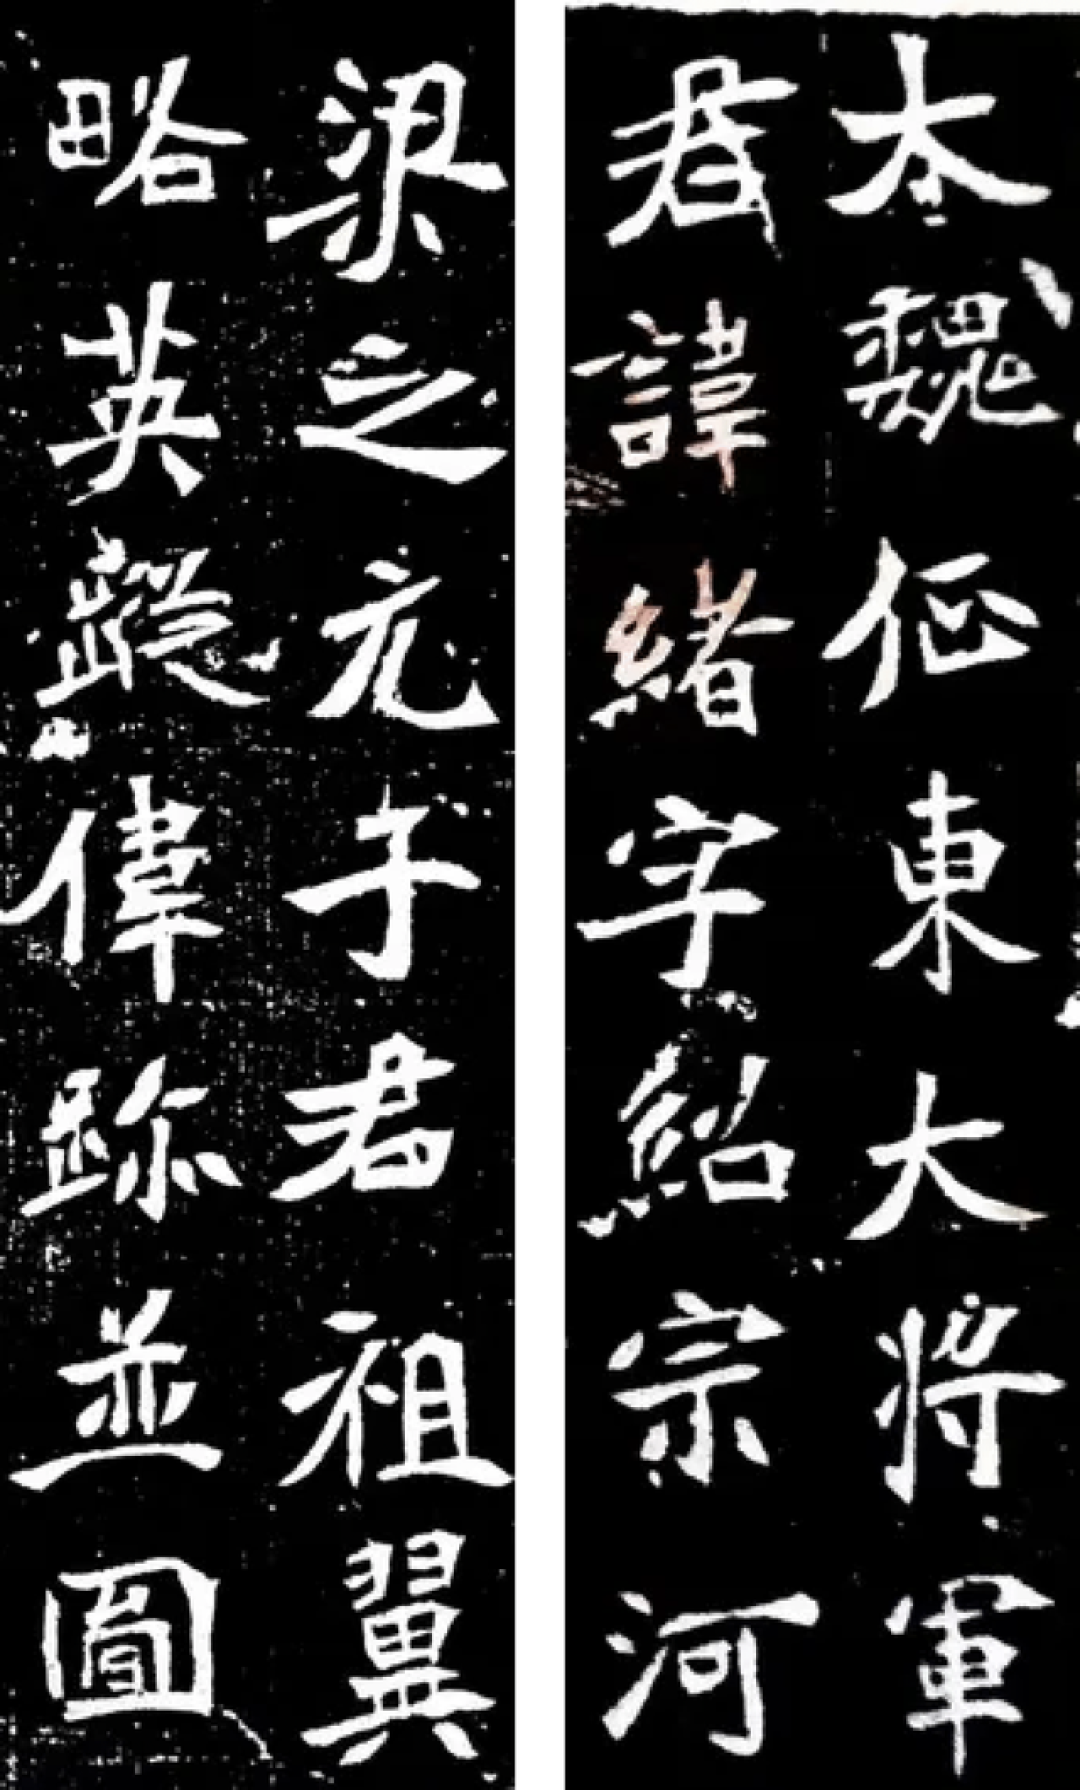 太魏征東大將軍
君諱緒字紹宗河
梁之元子君祖翼
略英蹤偉跡並圖